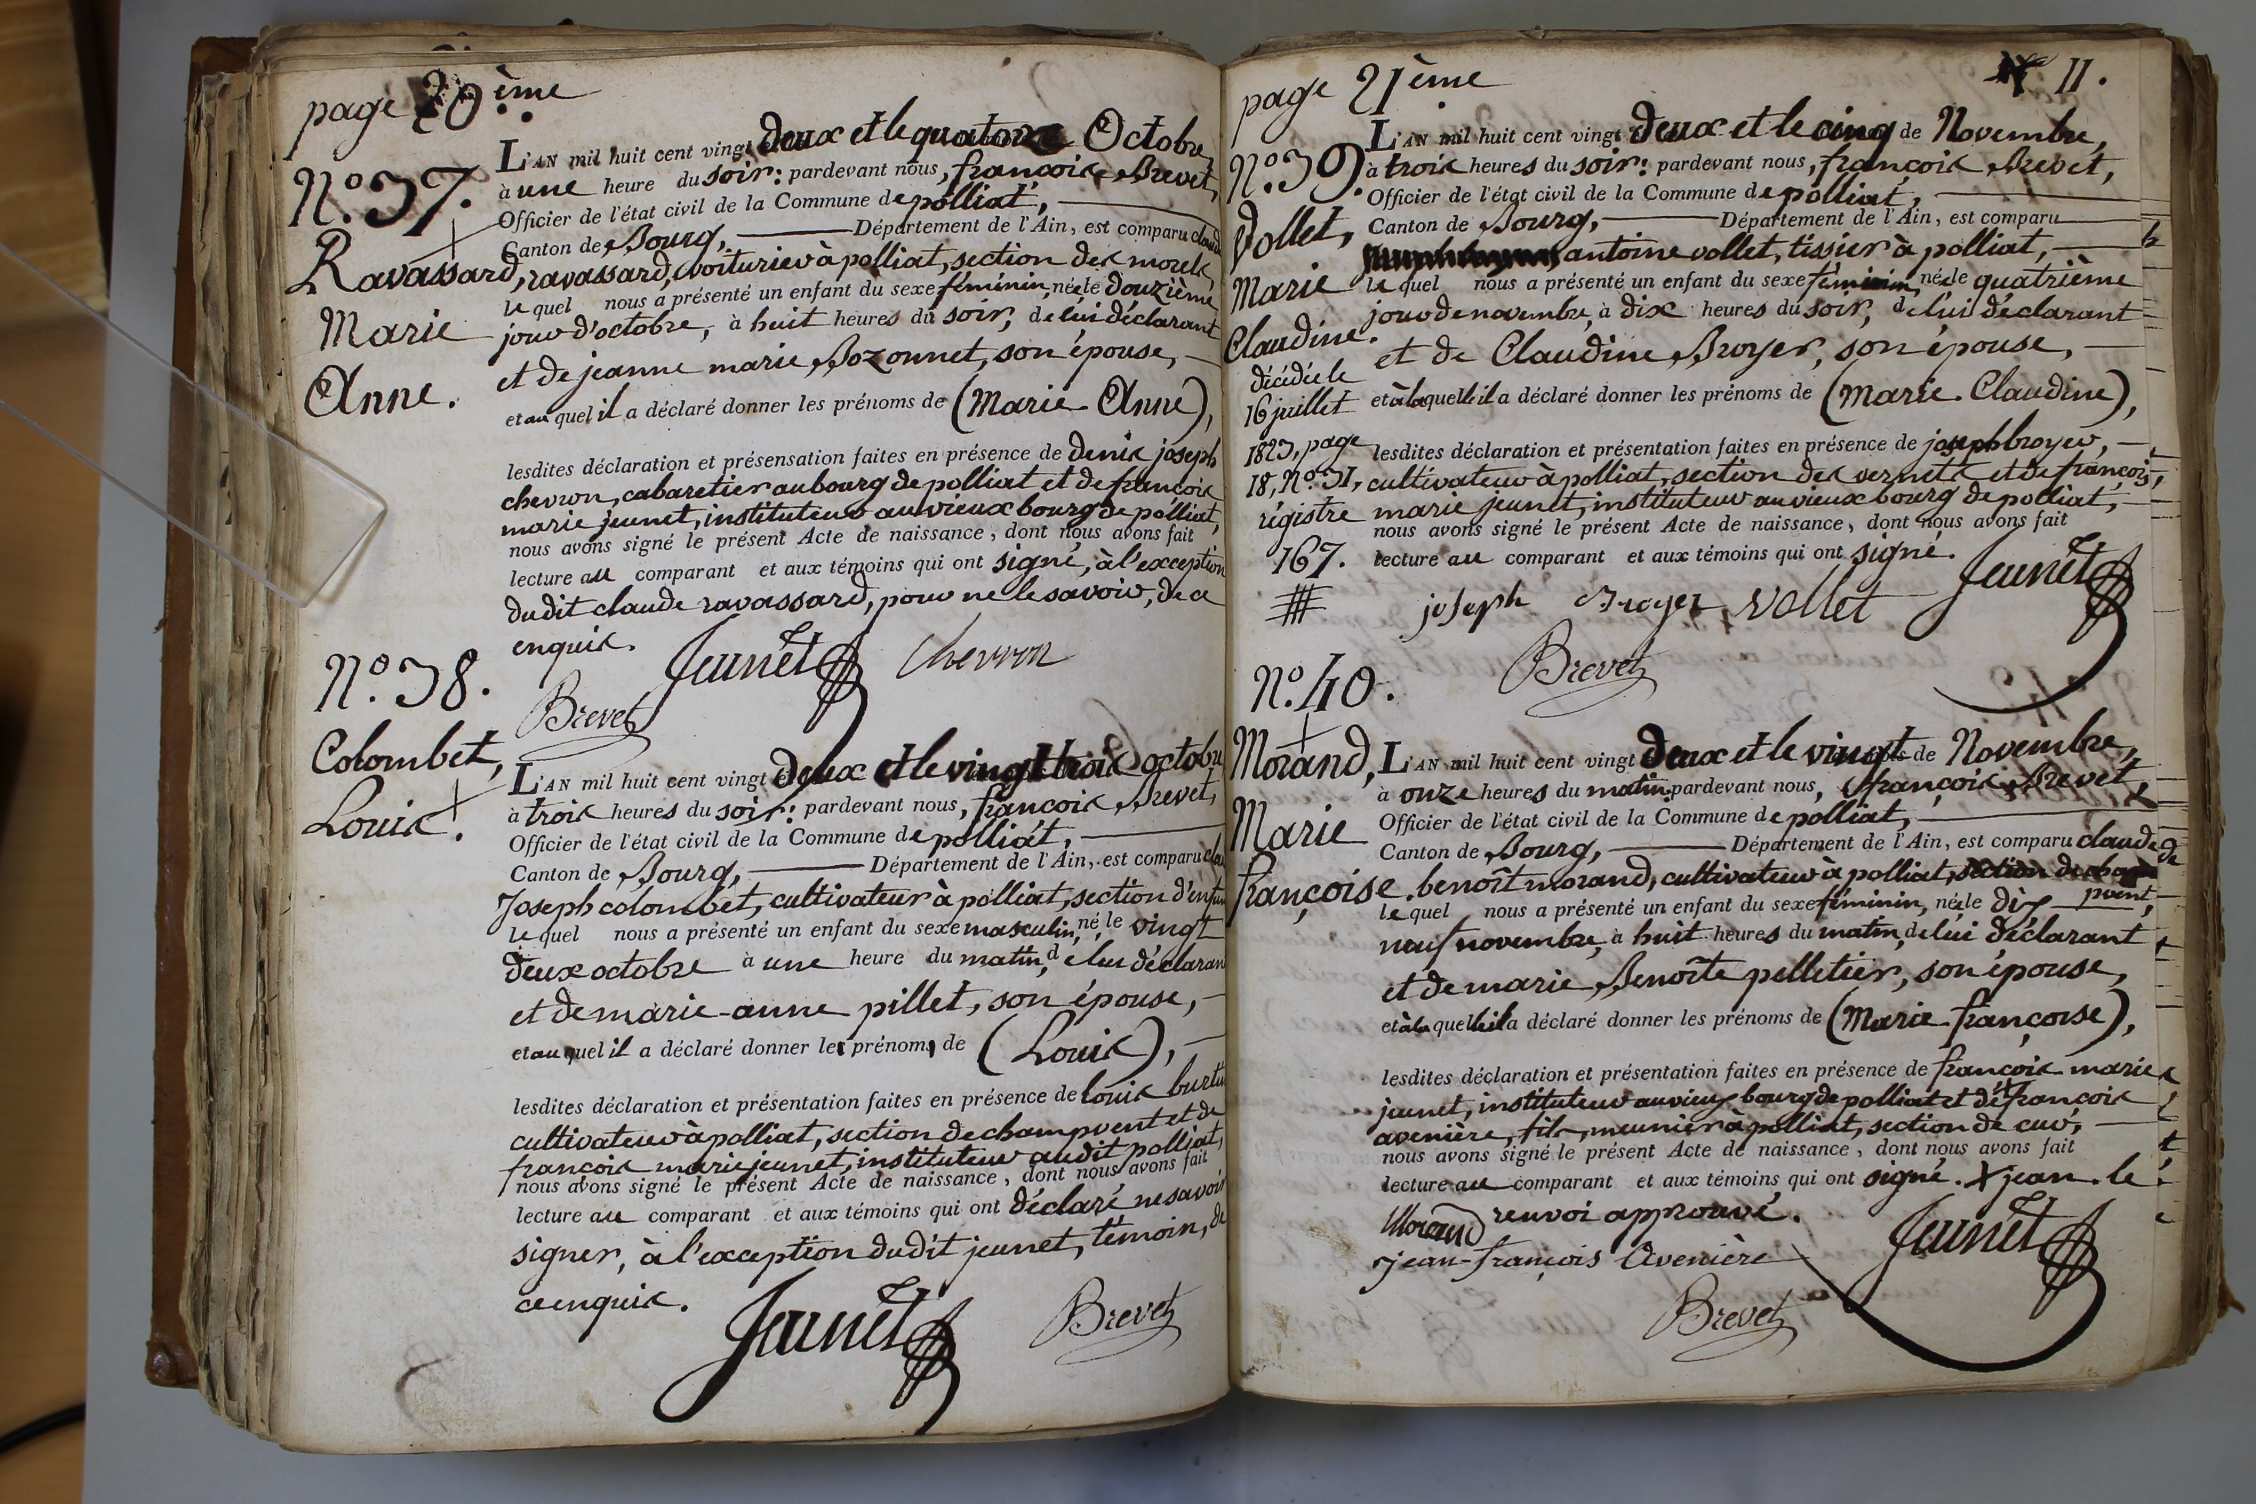 page 20.ème
N.º 37.
Ravassard,
Marie
Anne.
L'AN mil huit cent vingt deux et le quatorze Octobre,
à une heure du soir: pardevant nous, françois Brevet,
Officier de l'état civil de la Commune de polliat,
Canton de Bourg, Département de l'Ain, est comparu claude
ravassard, voiturier à polliat, section des morels,
lequel nous a présenté un enfant du sexe féminin, née le douzième
jour d'octobre, à huit heures du soir, de lui déclarant
et de jeanne marie Bozonnet, son épouse,
et au quel il a déclaré donner les prénoms de (Marie Anne),
lesdites déclaration et présensation faites en présence de denis joseph
chevron, cabaretier au bourg de polliat et de françois
marie jeunet, instituteur au vieux bourg de polliat,
nous avons signé le présent Acte de naissance, dont nous avons fait
lecture au comparant et aux témoins qui ont signé, à l'exception
dudit claude ravassard, pour ne le savoir, de ce
enquis.
Jeunet Chevron
Brevet
N.º 38.
Colombet,
Louis.
L'AN mil huit cent vingt deux et le vingt trois octobre
à trois heures du soir: pardevant nous, françois Brevet,
Officier de l'état civil de la Commune de polliat,
Canton de Bourg, Département de l'Ain, est comparu
Joseph colombet, cultivateur à polliat, section
lequel nous a présenté un enfant du sexe masculin, né le vingt
deux octobre à une heure du matin, de lui déclarant
et de marie-anne pillet, son épouse,
et au quel il a déclaré donner les prénoms de (Louis),
lesdites déclaration et présentation faites en présence de louis
cultivateur à polliat, section de champvent et de
françois marie jeunet, instituteur audit polliat,
nous avons signé le présent Acte de naissance, dont nous avons fait
lecture au comparant et aux témoins qui ont déclaré ne savoir
signer, à l'exception dudit jeunet, témoin, de
ce enquis.
Jeunet Brevet
page 21ème
11.
N.º 39.
Vollet,
Marie
Claudine.
décédée le
16 juillet
1823, page
18, N.º 31,
régistre
167.
L'AN mil huit cent vingt deux et le cinq de Novembre,
à trois heures du soir: pardevant nous, françois Brevet,
Officier de l'état civil de la Commune de polliat,
Canton de Bourg, Département de l'Ain, est comparu
antoine vollet, tissier à polliat,
lequel nous a présenté un enfant du sexe féminin, née le quatrième
jour de novembre, à dix heures du soir, de lui déclarant
et de Claudine Broyer, son épouse,
et à la quelle il a déclaré donner les prénoms de (Marie Claudine),
lesdites déclaration et présentation faites en présence de joseph broyer,
cultivateur à polliat, section des vernets et de françois,
marie jeunet, instituteur au vieux bourg de polliat,
nous avons signé le présent Acte de naissance, dont nous avons fait
lecture au comparant et aux témoins qui ont signé.
joseph Broyer Vollet Jeunet
Brevet
N.º 40.
Morand,
Marie
françoise.
L'AN mil huit cent vingt deux et le vingt de Novembre,
à onze heures du matin pardevant nous, françois Brevet,
Officier de l'état civil de la Commune de polliat,
Canton de Bourg, Département de l'Ain, est comparu claude
benoît morand, cultivateur à polliat, section de champ
pvent,
lequel nous a présenté un enfant du sexe féminin, née le dix
neuf novembre, à huit heures du matin, de lui déclarant
et de marie Benoîte pelletier, son épouse,
et à la quelle il a déclaré donner les prénoms de (Marie françoise),
lesdites déclaration et présentation faites en présence de françois marie
jeunet, instituteur au vieux bourg de polliat et de françois
avenière, fils, meunier à polliat, section de cuv,
nous avons signé le présent Acte de naissance, dont nous avons fait
lecture au comparant et aux témoins qui ont signé. X jean. le
renvoi approuvé.
Morand
jean-françois Avenière Jeunet
Brevet